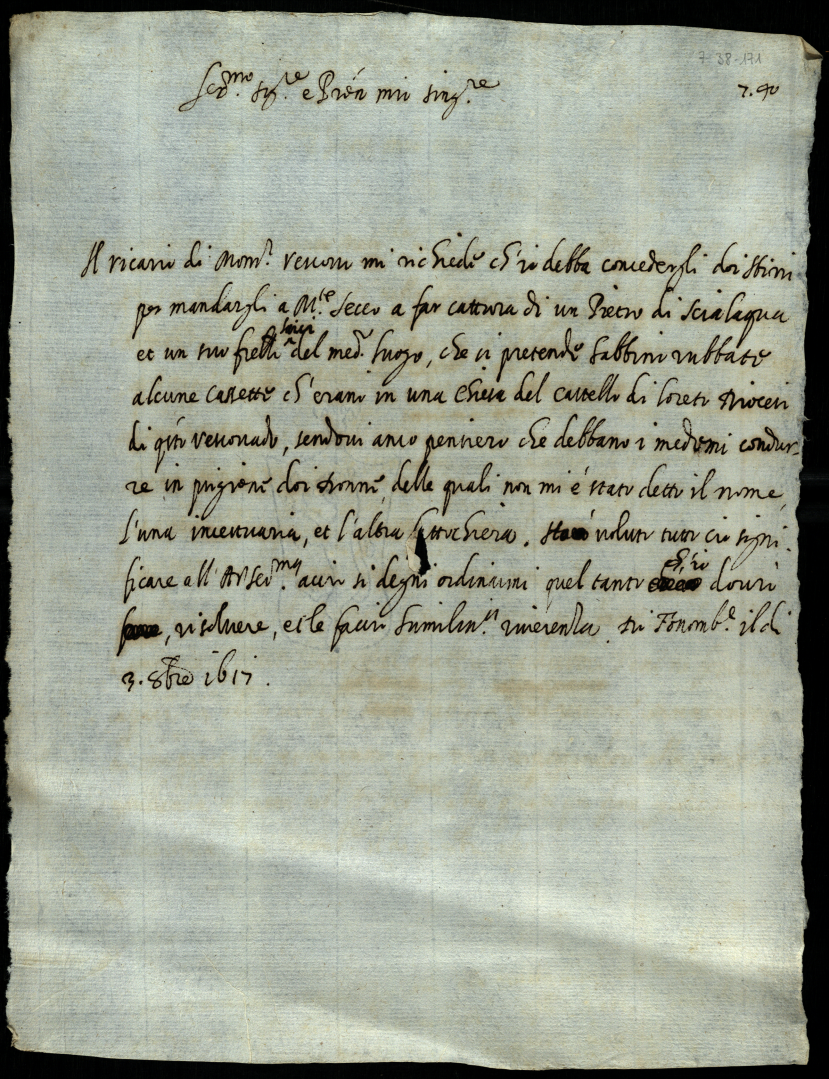 7-38-171
Ser.mo Sig.re e Pròn mio sing.re
7. 90
Il vicario di Mons.r Vescovo mi richiede ch'io debba concedergli doi sbirri
per mandargli a M.te Secco a far cattura di un Pietro di Scialaqua
et un suo frello del med.o luogo, che si pretende habbino rubbate
alcune cassette ch'erano in una chiesa del castello di Loreto diocesi
di q̃sto vescovado, sendovi anco pensiero che debbano i medemi condur-
re in prigione doi donne, delle quali non mi è stato detto il nome,
l'una incestuaria, et l'altra fattochiera. voluto tutto ciò signi-
ficare all' A. V. Ser.ma acciò si degni ordinarmi quel tanto ch'io dovrò
risolvere, et le faccio humilim.a riverenza. Di il dì
3. 8bre 1617.